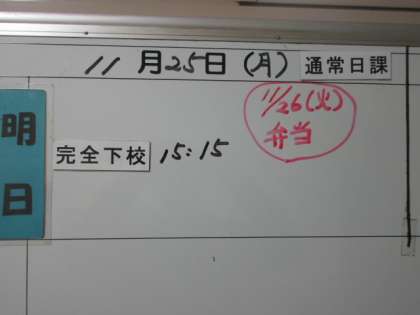 11月25日(月) 通常日課
11/26(火)
弁当
明日
完全下校 15:15